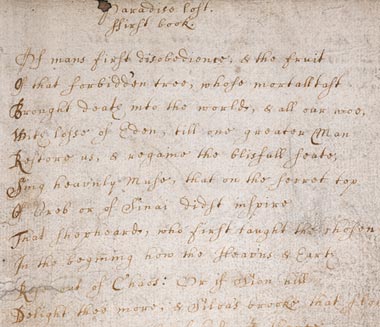 Paradise lost.
ffirst book.
Of mans first disobedience, & the fruit
O that forbidden tree, whose mortall tast
Brought death into the world, & all our woe,
With losse of Eden, till one greater Man
Restore us, & regaine the blisfull seate,
Sing heavenly Muse, that on the secret top
O Oreb or of Sinai didst inspire
That shepheard, who first taught the chosen
In the begining how the Heavns & Earth
R out of Chaos: Or if Sion hill
Delight thee more, & Siloas brooke that